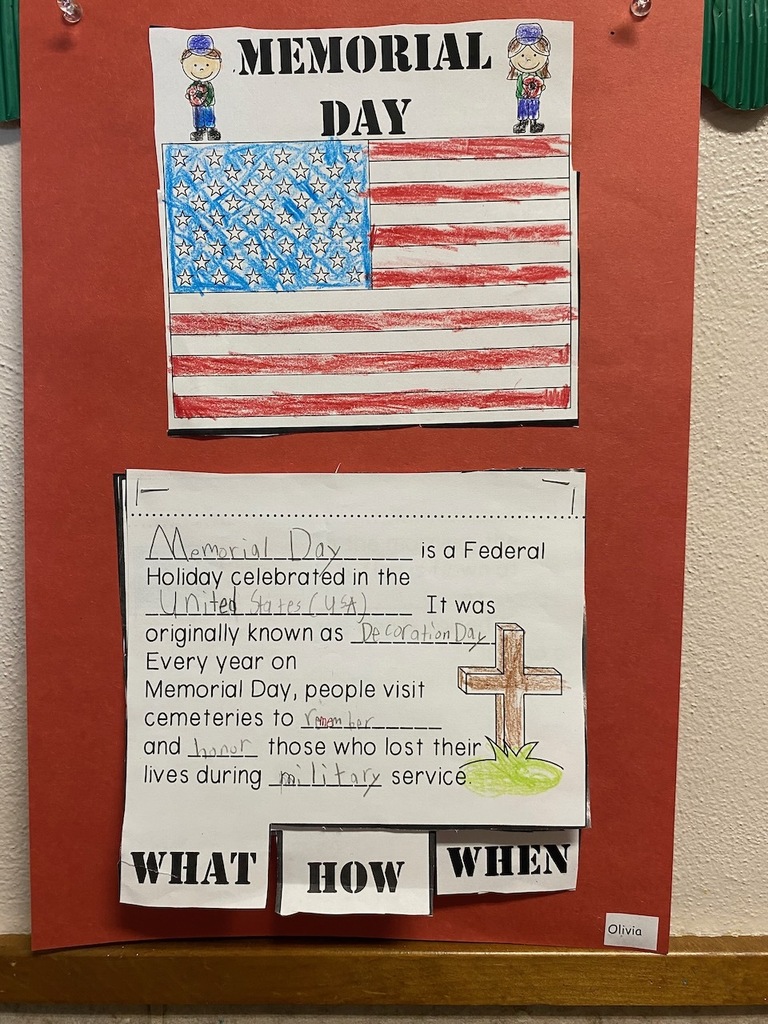 MEMORIAL
DAY
Memorial Day is a Federal
Holiday celebrated in the
United States (USA) It was
originally known as Decoration Day
Every year on
Memorial Day, people visit
cemeteries to remember
and honor those who lost their
lives during military service.
WHAT HOW WHEN
Olivia